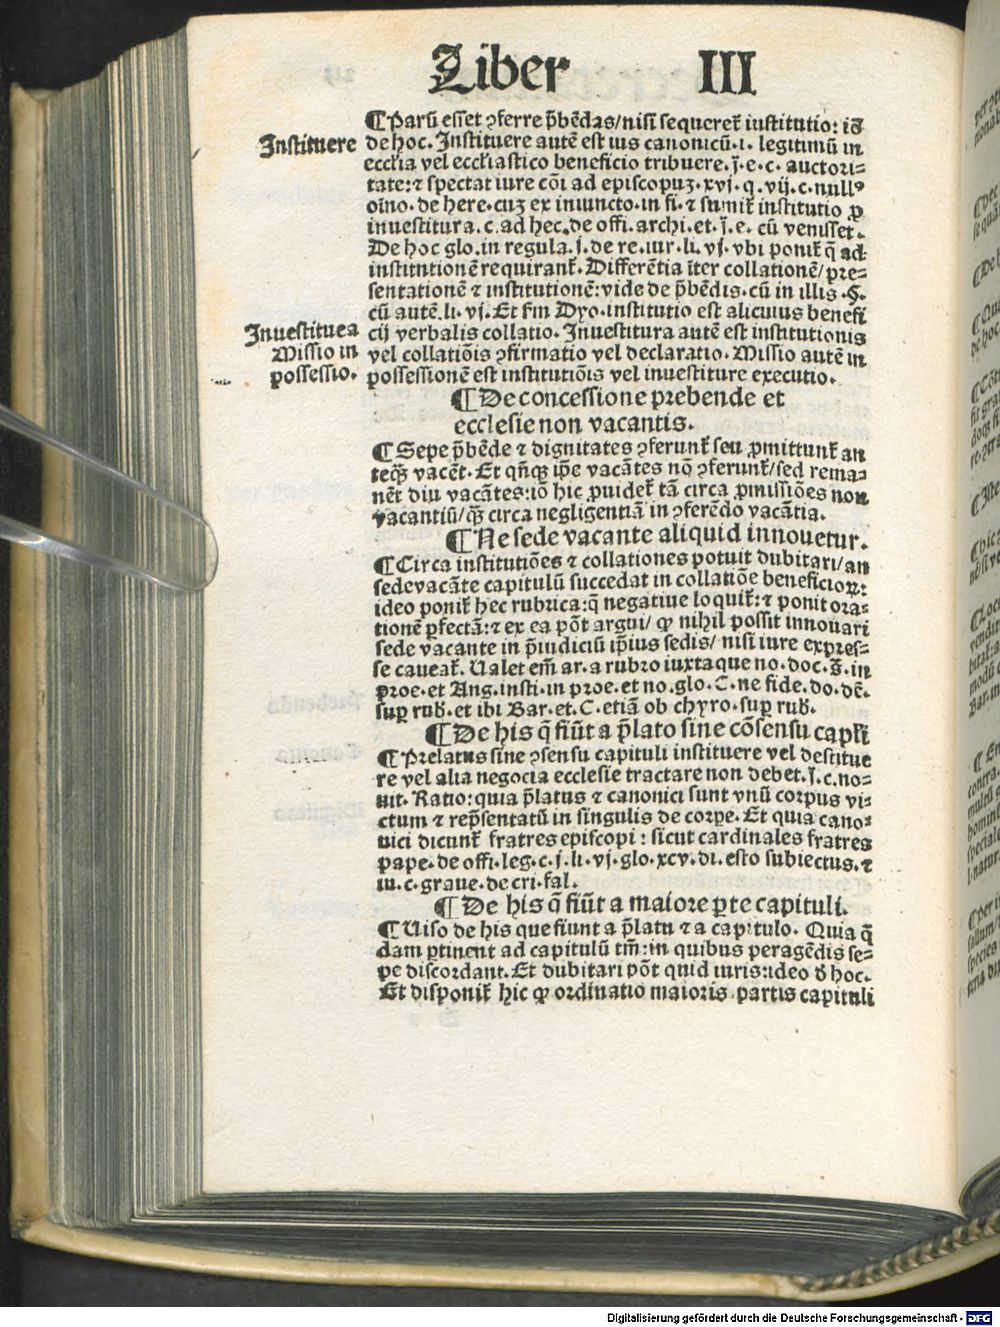 Liber III
¶Parū esset ꝯferre p̄bēdas/nisi sequeret᷑ iustitutio: iō
Instituere
de hoc. Instituere autē est ius canonicū.i. legitimū in
ecclīa vel ecclīastico beneficio tribuere. j̄.e.c. auctori⸗
tate:⁊ spectat iure cōi ad episcopuꝫ.xvj.q.vij.c.nullꝰ
oīno.de here.cuꝫ ex iniuncto.in fi.⁊ sumit᷑ institutio ꝓ
inuestitura.c.ad hec.de offi.archi.et.j̄.e. cū venisset.
De hoc glo.in regula.j.de re.iur.li.vj.vbi ponit᷑ q̄ ad
institntionē requirant᷑. Differētia īter collationē/pre⸗
sentationē ⁊ institutionē:vide de p̄bēdis.cū in illis .§.
cū autē.li.vj.Et fm Dyo.institutio est alicuius benefi
Inuestituea
cij verbalis collatio. Inuestitura autē est institutionis
Missio in
vel collatiōis ꝯfirmatio vel declaratio. Missio autē in
possessio.
possessionē est institutiōis vel inuestiture executio.
¶De concessione prebende et
ecclesie non vacantis.
¶Sepe p̄bēde ⁊ dignitates ꝯferunt᷑ seu ꝓmittunt᷑ an
teqꝫ̄ vacēt. Et qn̄qꝫ ip̄e vacātes nō ꝯferunt᷑/sed rema⸗
nēt diu vacātes:iō hic ꝓuidet᷑ tā circa ꝓmissiōes non
vacantiū/qꝫ̄ circa negligentiā in ꝯferēdo vacātia.
¶Ne sede vacante aliquid innouetur.
¶Circa institutiōes ⁊ collationes potuit dubitari/an
sedevacāte capitulū succedat in collatiōe beneficioꝝ:
ideo ponit᷑ hec rubrica:q̄ negatiue loquit᷑:⁊ ponit ora⸗
tionē ꝑfectā:⁊ ex ea pōt argui/ ꝙ nihil possit innouari
sede vacante in p̄iudiciū ip̄ius sedis/ nisi iure expres⸗
se caueat᷑. Ualet em̄ ar.a rubro iuxta que no.doc.ꝫ̄.in
proe.et Ang.insti.in proe.et no.glo.C.ne fide.do.dē.
suꝑ rub̄.et ibi Bar.et.C.etiā ob chyro.suꝑ rub̄.
¶De his q̄ fiūt a p̄lato sine cōsensu capl̄i
¶Prelatus sine ꝯsensu capituli instituere vel destitue
re vel alia negocia ecclesie tractare non debet.j̄.c.no⸗
uit. Ratio:quia p̄latus ⁊ canonici sunt vnū corpus vi⸗
ctum ⁊ rep̄sentatū in singulis de corpe. Et quia cano⸗
nici dicunt᷑ fratres episcopi : sicut cardinales fratres
pape.de offi.leg.c.j.li.vj.glo.xcv.di.esto subiectus.⁊
in.c.graue.de cri.fal.
¶De his q̄ fiūt a maiore ꝑte capituli.
¶Uiso de his que fiunt a p̄latu ⁊ a capitulo. Quia q̄
dam ꝑtinent ad capitulū tm̄:in quibus peragēdis se⸗
pe discordant. Et dubitari pōt quid iuris:ideo ꝺ̄ hoc.
Et disponit᷑ hic ꝙ ordinatio maioris partis capituli
Digitalisierung gefördert durch die Deutsche Forschungsgemeinschaft - DFG